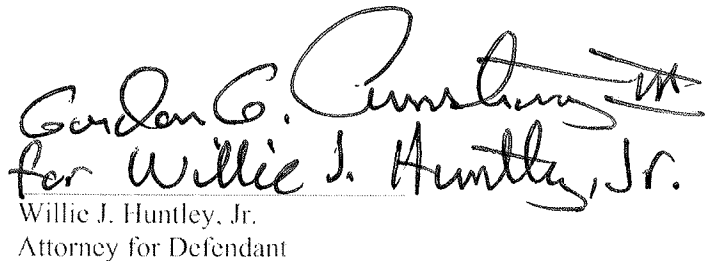 Gordon G. Armstrong, III
for Willie J. Huntley, Jr.
Willie J. Huntley, Jr.
Attorney for Defendant